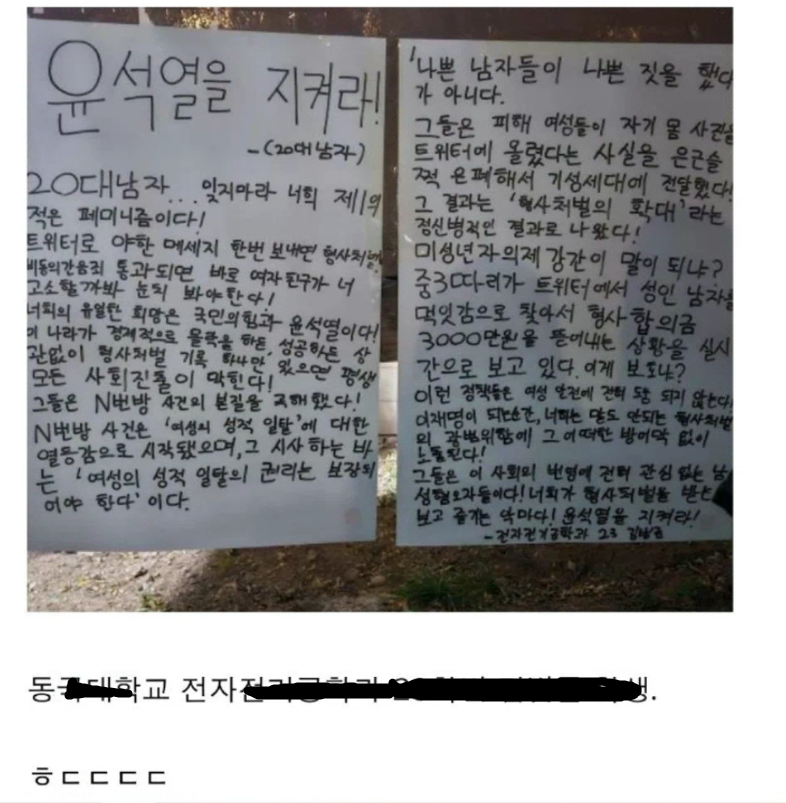 윤석열을 지켜라!
-(20대 남자)
20대남자... 잊지마라 너희 제1의
적은 페미니즘이다!
트위터로 야한 메세지 한번 보내면 형사처벌!
비동의간음죄 통과되면 바로 여자친구가 너
고소할까봐 눈치 봐야한다!
너희의 유일한 희망은 국민의힘과 윤석열이다!
이 나라가 경제적으로 몰락을 하든 성공하든 상
관없이 형사처벌 기록 하나만 있으면 평생
모든 사회진출이 막힌다!
그들은 N번방 사건의 본질을 곡해했다!
N번방 사건은 '여성의 성적 일탈'에 대한
열등감으로 시작됐으며, 그 시사하는 바
는 '여성의 성적 일탈의 권리는 보장되
어야 한다'이다.
'나쁜 남자들이 나쁜 짓을 했다
가 아니다.
그들은 피해 여성들이 자기 몸 사진을
트위터에 올렸다는 사실을 은근슬
쩍 은폐해서 기성세대에 전달했다!
그 결과는 '형사처벌의 확대'라는
정신병적인 결과로 나왔다!
미성년자의제 강간이 말이 되냐?
중3따리가 트위터에서 성인 남자를
먹잇감으로 찾아서 형사 합의금
3000만원을 뜯어내는 상황을 실시
간으로 보고 있다. 이게 보호냐?
이런 정책들은 여성 안전에 전혀 도움 되지 않는다!
이재명이 되는순간, 너희는 말도 안되는 형사처벌
의 광범위함에 그 어떠한 방어막 없이
노출된다!
그들은 이 사회의 번영에 전혀 관심 없는 남
성혐오자들이다! 너희가 형사처벌을 받는
보고 즐기는 악마다! 윤석열을 지켜라!
-전자전기공학과 23
동 대학교 전자 생.
ㅎㄷㄷㄷㄷ